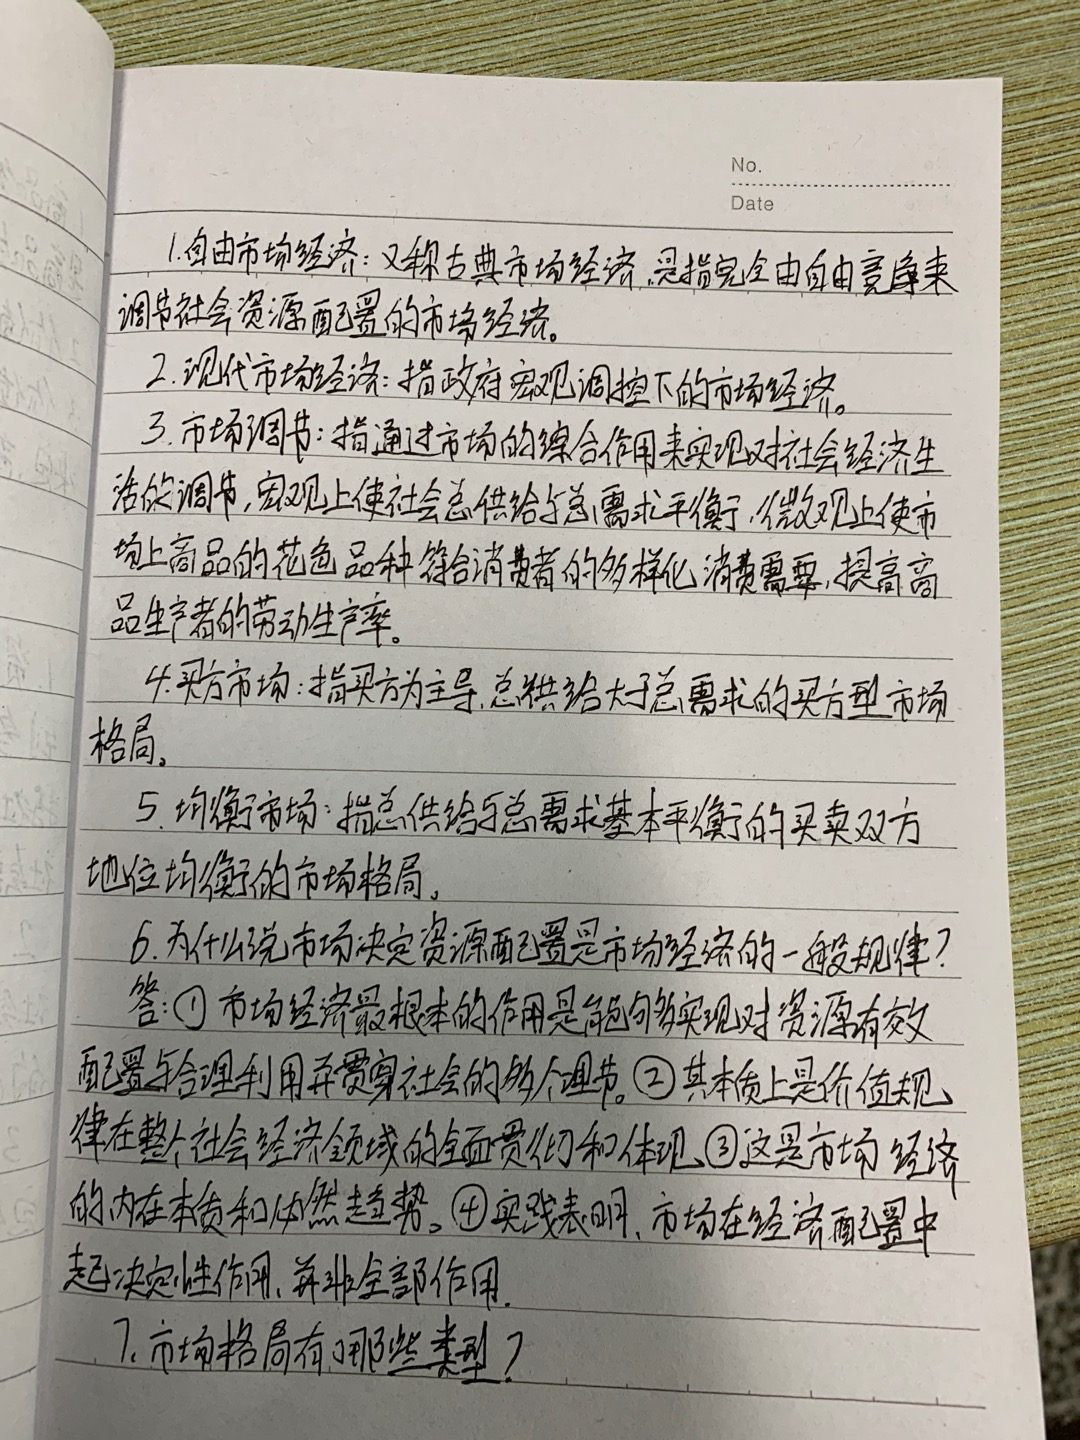 No.
Date
1.自由市场经济：又称古典市场经济，是指完全由自由竞争来
调节社会资源配置的市场经济。
2.现代市场经济：指政府宏观调控下的市场经济。
3.市场调节：指通过市场的综合作用来实现对社会经济生
活的调节，宏观上使社会总供给与总需求平衡，微观上使市
场上商品的花色品种符合消费者的多样化消费需要，提高商
品生产者的劳动生产率。
4.买方市场：指买方为主导，总供给大于总需求的买方型市场
格局。
5.均衡市场：指总供给与总需求基本平衡的买卖双方
地位均衡的市场格局。
6.为什么说市场决定资源配置是市场经济的一般规律？
答：①市场经济最根本的作用是能够实现对资源有效
配置与合理利用并贯穿社会的多个环节。②其本质上是价值规
律在整个社会经济领域的全面贯彻和体现③这是市场经济
的内在本质和必然趋势。④实践表明，市场在经济配置中
起决定性作用，并非全部作用.
7.市场格局有哪些类型？